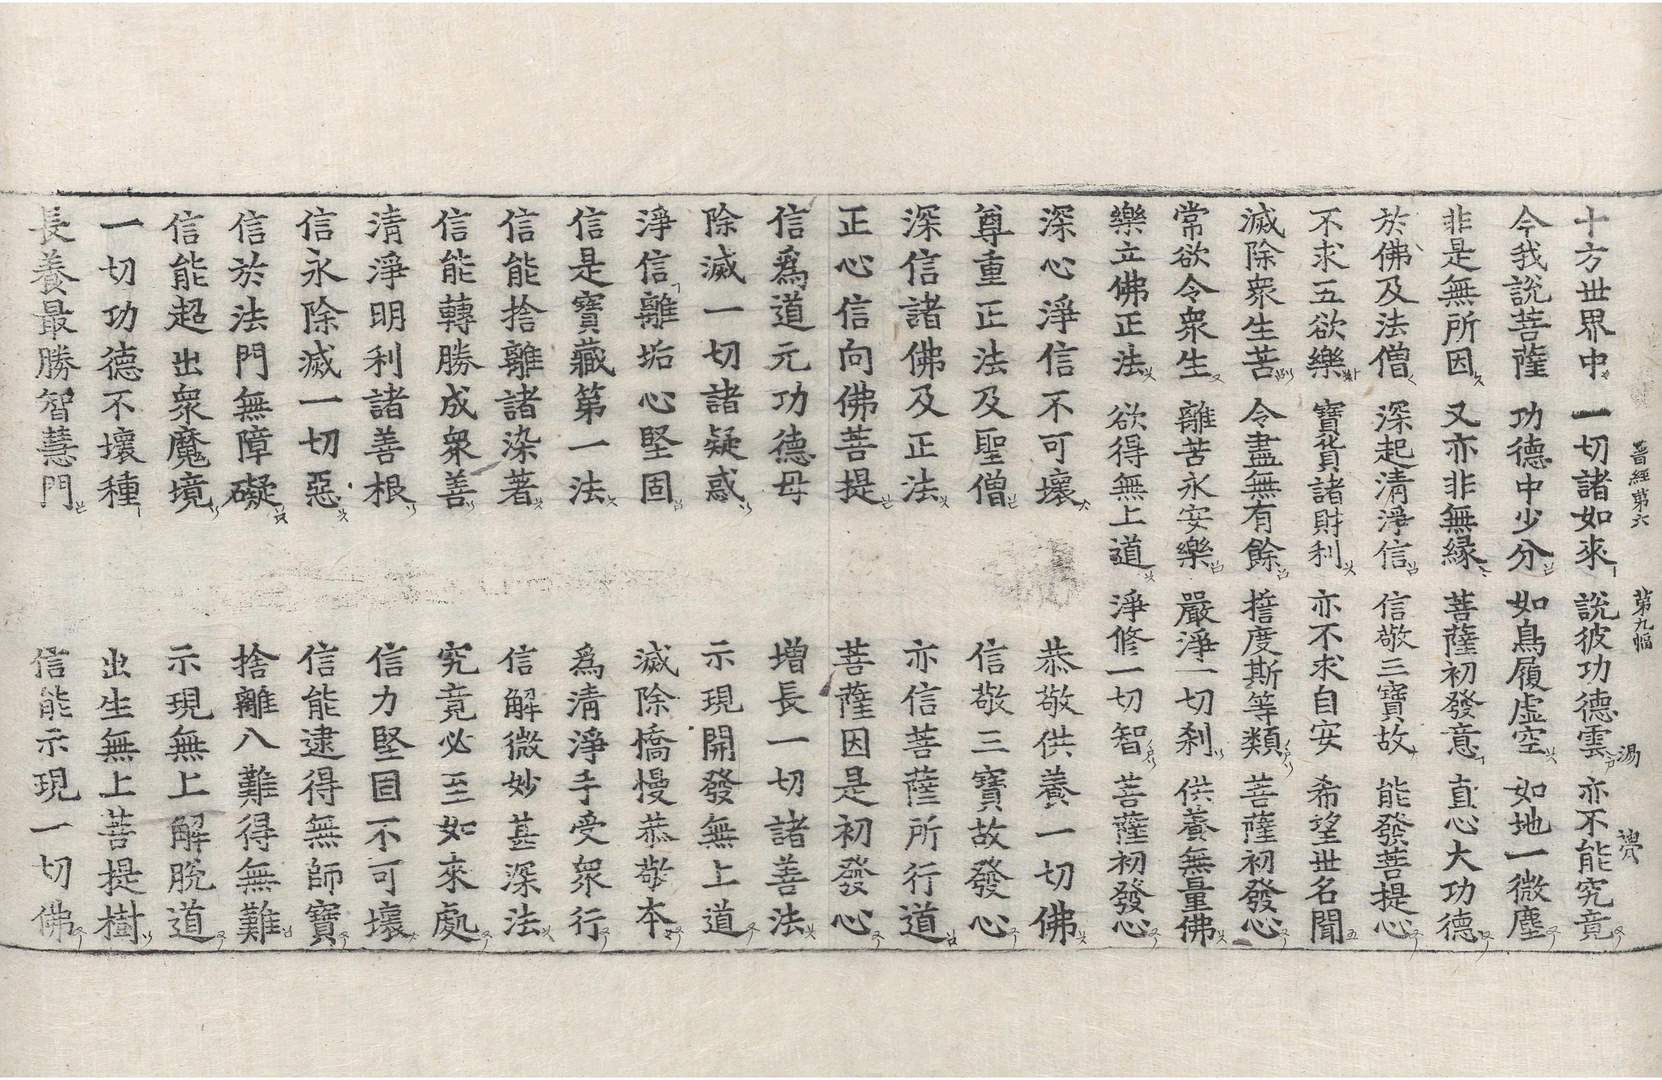 晉經第六 第九幅 湯
十方世界中 一切諸如來 說彼功德雲 亦不能究竟
今我說菩薩 功德中少分 如鳥履虛空 如地一微塵
非是無所因 又亦非無緣 菩薩初發意 直心大功德
於佛及法僧 深起清淨信 信敬三寶故 能發菩提心
不求五欲樂 寶貨諸財利 亦不求自安 希望世名聞
滅除衆生苦 令盡無有餘 誓度斯等類 菩薩初發心
常欲令衆生 離苦永安樂 嚴淨一切刹 供養無量佛
樂立佛正法 欲得無上道 淨修一切智 菩薩初發心
深心淨信不可壞 恭敬供養一切佛
尊重正法及聖僧 信敬三寶故發心
深信諸佛及正法 亦信菩薩所行道
正心信向佛菩提 菩薩因是初發心
信爲道元功德母 增長一切諸善法
除滅一切諸疑惑 示現開發無上道
淨信離垢心堅固 滅除憍慢恭敬本
信是寶藏第一法 爲清淨手受衆行
信能捨離諸染著 信解微妙甚深法
信能轉勝成衆善 究竟必至如來處
清淨明利諸善根 信力堅固不可壞
信永除滅一切惡 信能逮得無師寶
信於法門無障礙 捨離八難得無難
信能超出衆魔境 示現無上解脫道
一切功德不壞種 出生無上菩提樹
長養最勝智慧門 信能示現一切佛